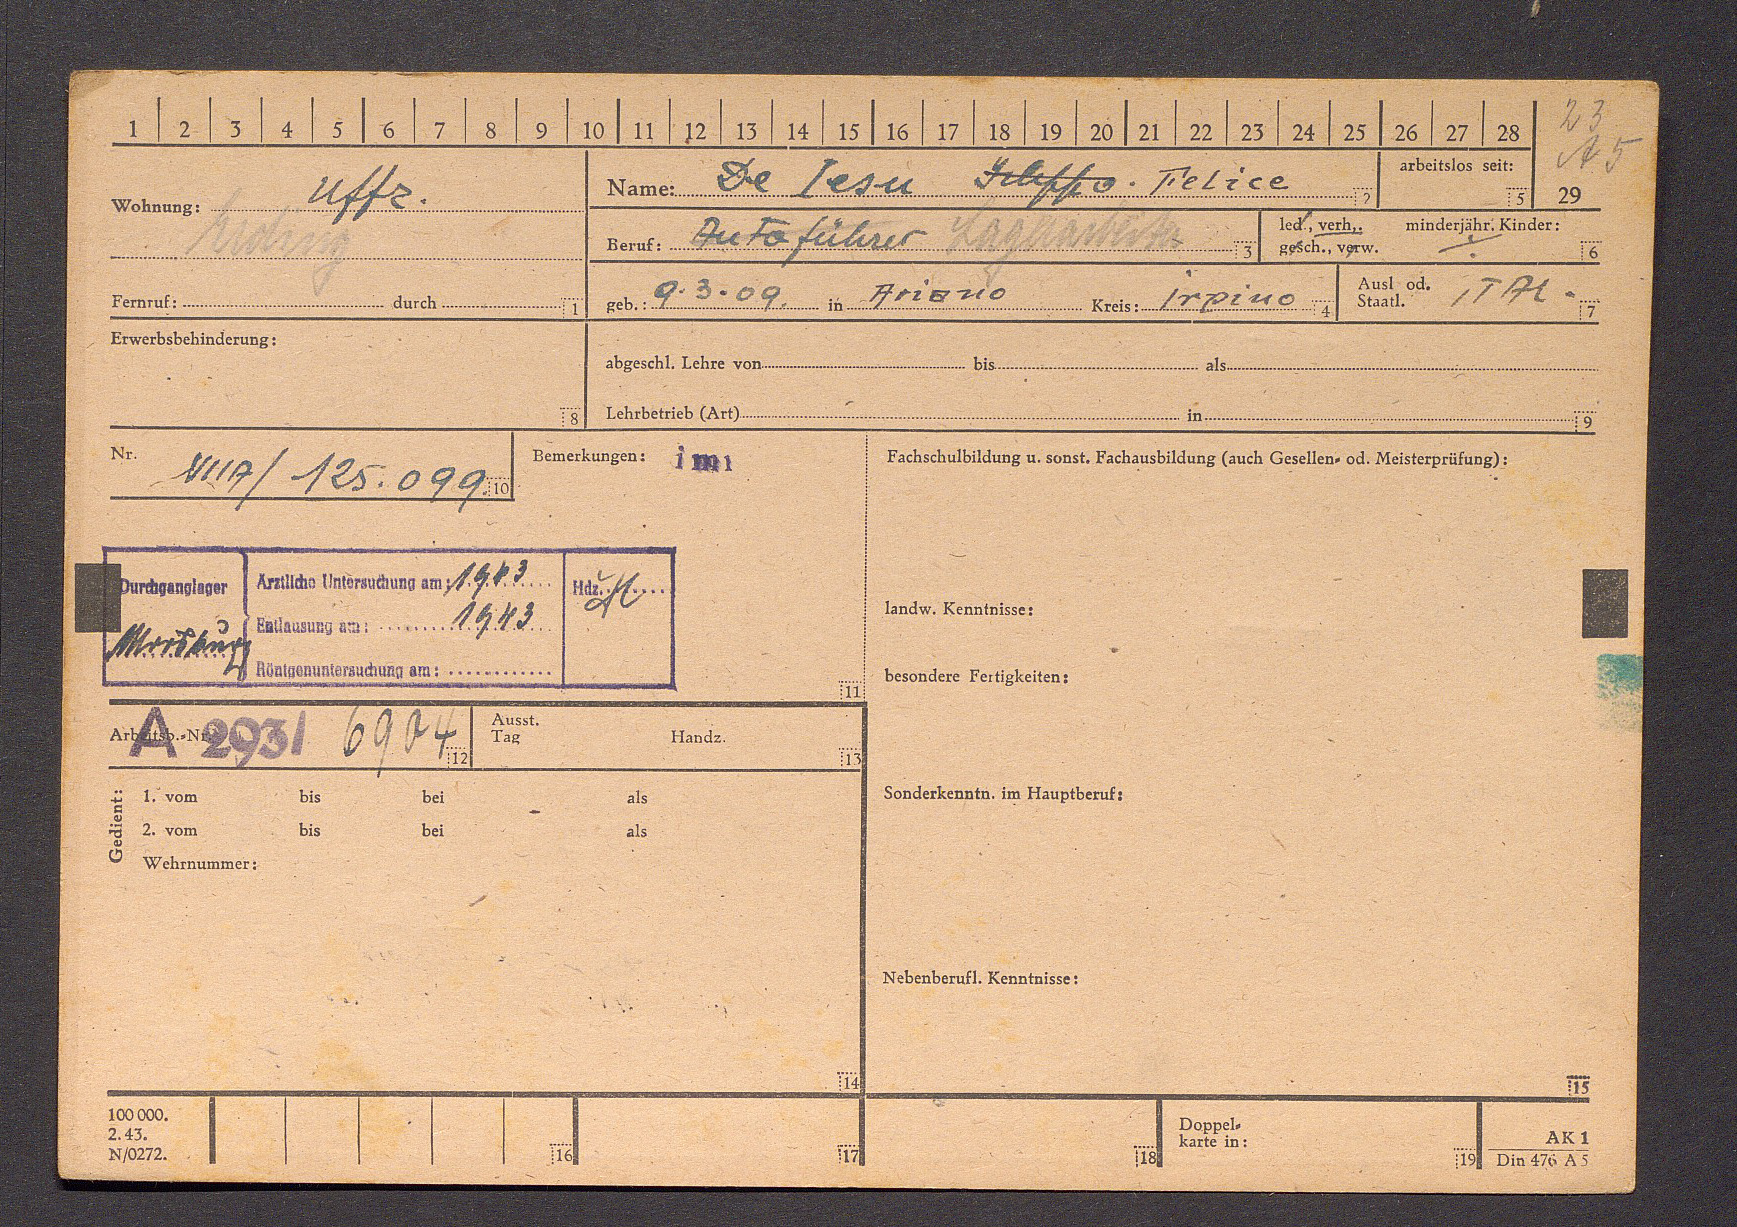 1 2 3 4 5 6 7 8 9 10 11 12 13 14 15 16 17 18 19 20 21 22 23 24 25 26 27 28 29
23
A 5
Wohnung: Uffz.
Erding
Fernruf: durch 1
Name: De Iesu Filippo. Felice 2
arbeitslos seit: 5
Beruf: Autoführer Lagerarbeiter 3
led., verh., gesch., verw.
minderjähr. Kinder: ./. 6
geb.: 9.3.09. in Ariano Kreis: Irpino 4
Ausl od. Staatl. ITAL. 7
Erwerbsbehinderung: 8
abgeschl. Lehre von bis als
Lehrbetrieb (Art) in 9
Nr. VIIA/ 125.099. 10
Bemerkungen: imi
Fachschulbildung u. sonst. Fachausbildung (auch Gesellen- od. Meisterprüfung):
Durchganglager
Moosburg
Ärztliche Untersuchung am: 1943
Entlausung am: 1943
Röntgenuntersuchung am:
Hdz.
11
landw. Kenntnisse:
besondere Fertigkeiten:
Arbeitsb.-Nr. A 2931 6904 12
Ausst. Tag Handz. 13
Sonderkenntn. im Hauptberuf:
Gedient:
1. vom bis bei als
2. vom bis bei als
Wehrnummer:
14
Nebenberufl. Kenntnisse:
15
100 000.
2. 43.
N/0272.
16 17 18
Doppel-
karte in: 19
AK 1
Din 476 A 5